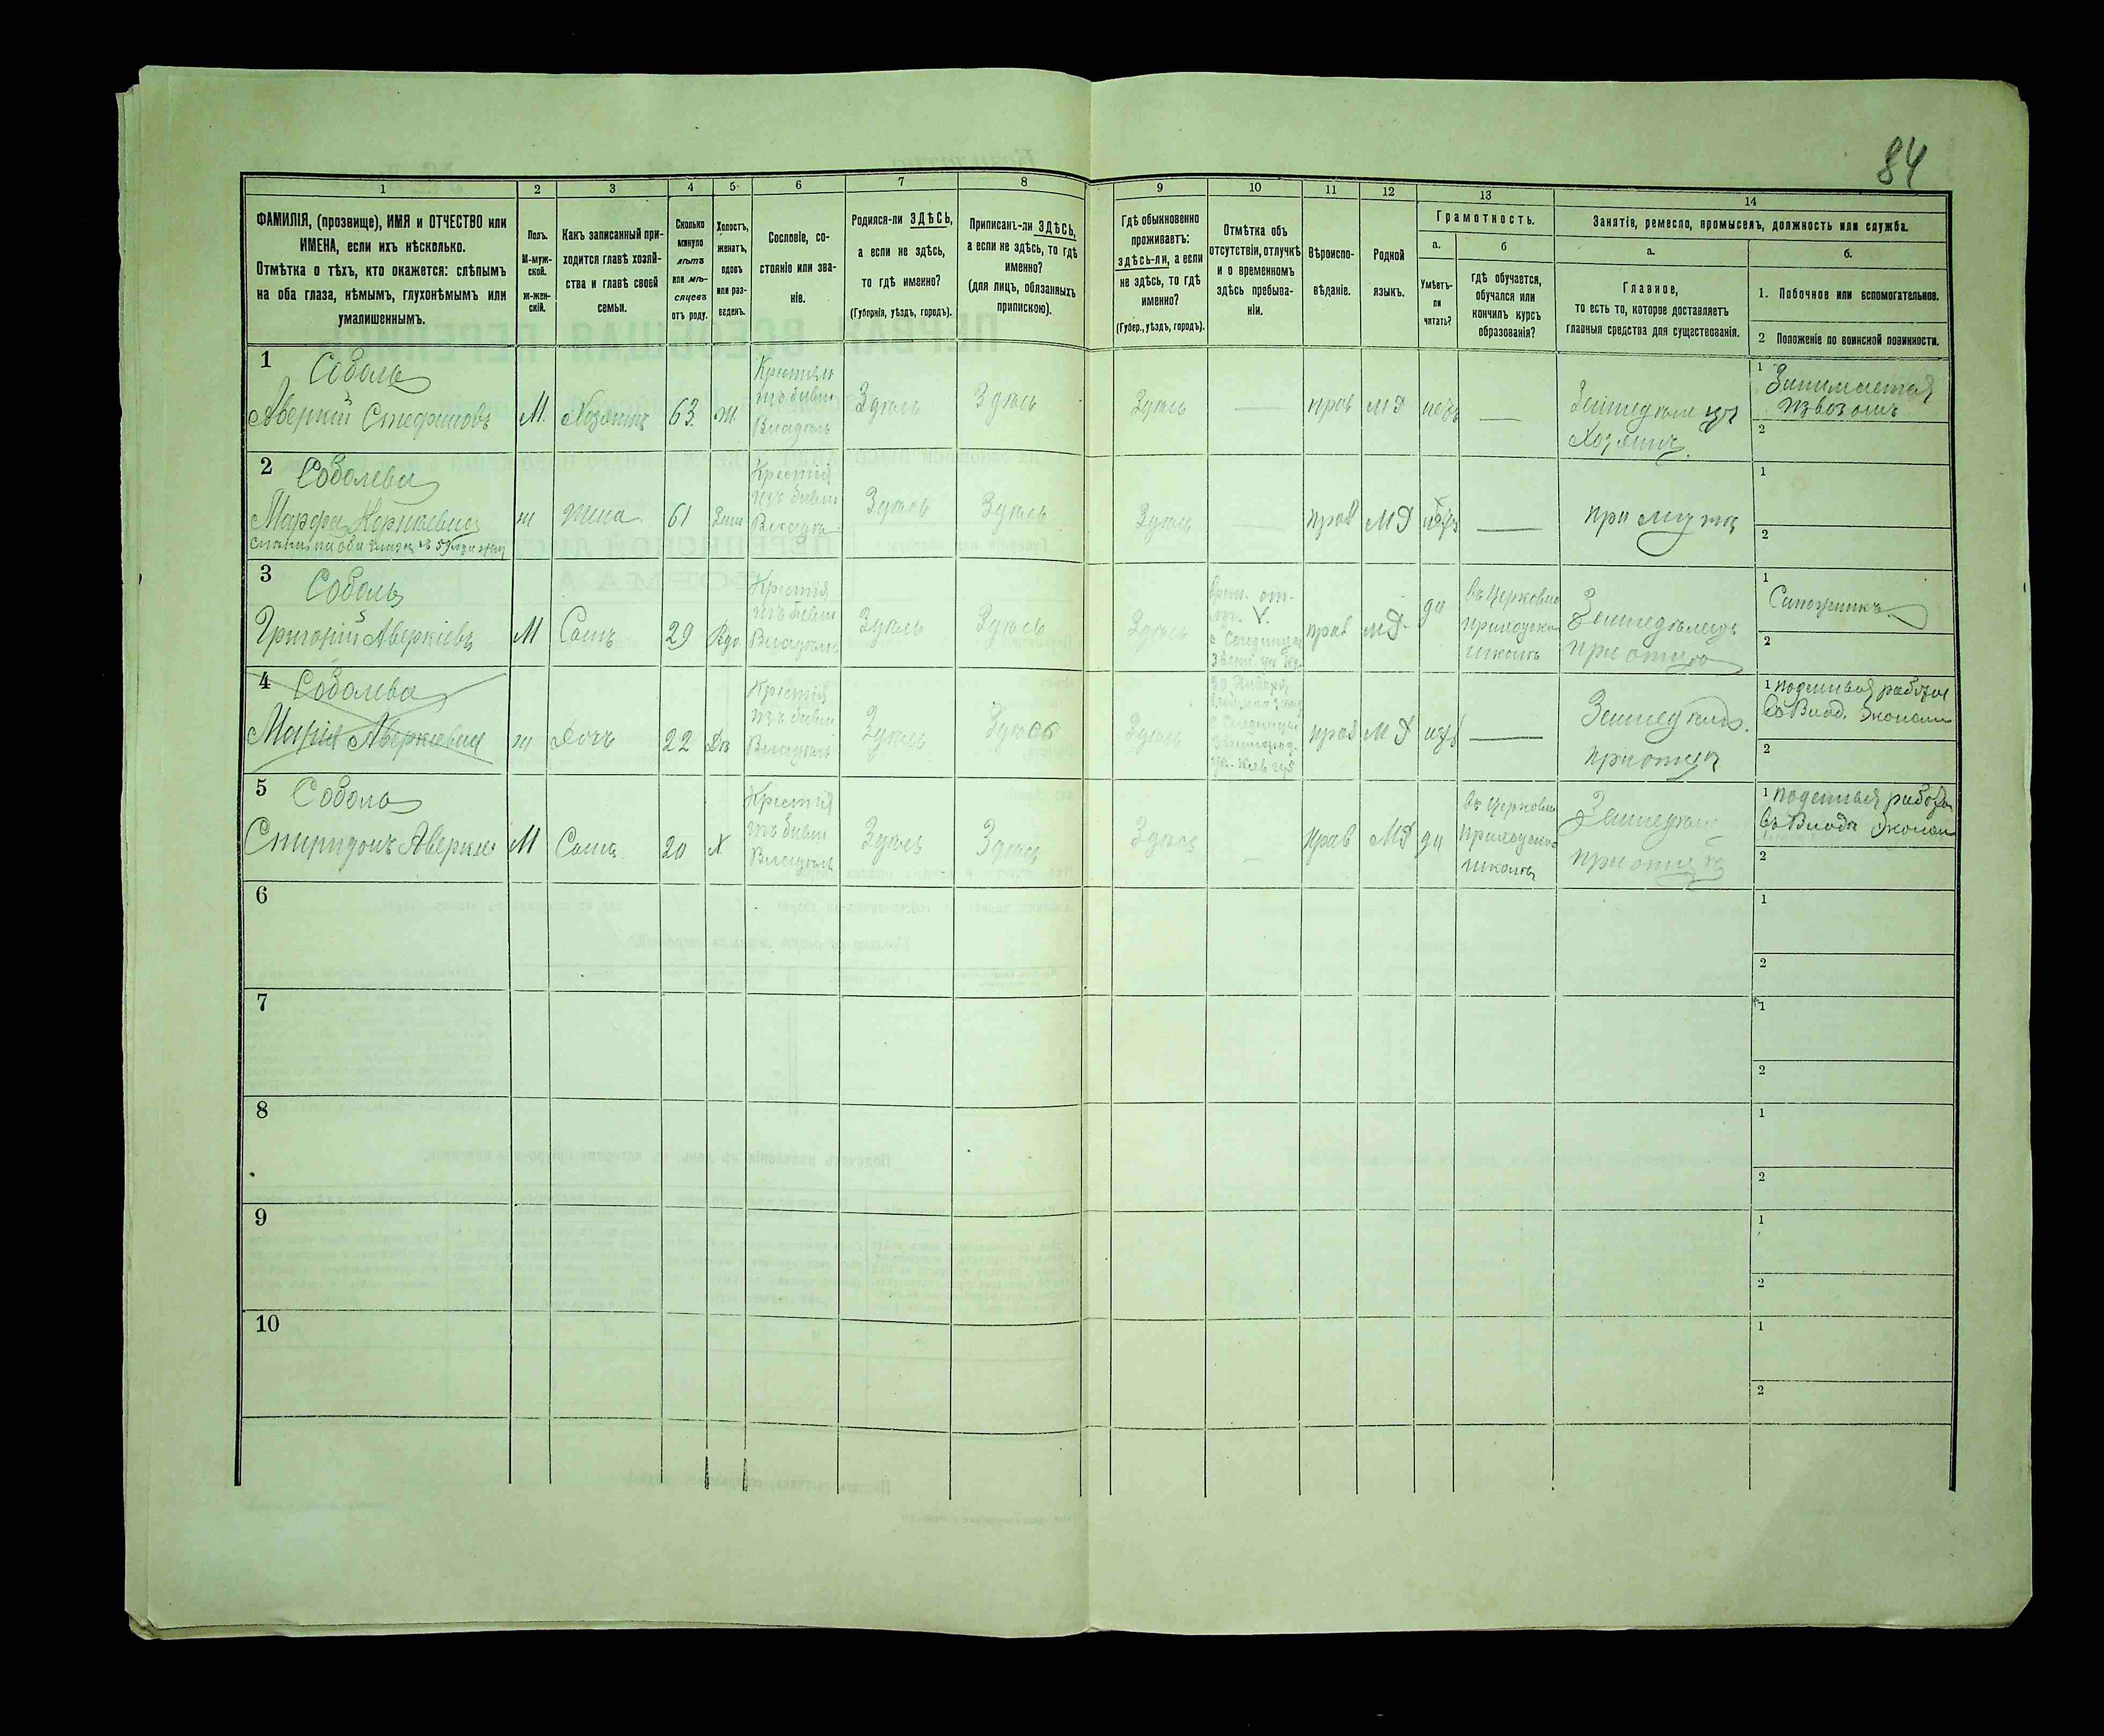 84
1 2 3 4 5 6 7 8 9 10 11 12 13 14
ФАМИЛІЯ, (прозвище), ИМЯ и ОТЧЕСТВО или
ИМЕНА, если ихъ нѣсколько.
Отмѣтка о тѣхъ, кто окажется: слѣпымъ
на оба глаза, нѣмымъ, глухонѣмымъ или
умалишеннымъ.
Полъ.
М-муж-
ской.
ж-жен-
скій.
Какъ записанный при-
ходится главѣ хозяй-
ства и главѣ своей
семьи.
Сколько
минуло
лѣтъ
или мѣ-
сяцевъ
отъ роду.
Холостъ,
женатъ,
вдовъ
или раз-
веденъ.
Сословіе, со-
стояніе или зва-
ніе.
Родился-ли ЗДѢСЬ,
а если не здѣсь,
то гдѣ именно?
(Губернія, уѣздъ, городъ).
Приписанъ-ли ЗДѢСЬ,
а если не здѣсь, то гдѣ
именно?
(для лицъ, обязанныхъ
припискою).
Гдѣ обыкновенно
проживаетъ:
здѣсь-ли, а если
не здѣсь, то гдѣ
именно?
(Губер., уѣздъ, городъ).
Отмѣтка объ
отсутствіи, отлучкѣ
и о временномъ
здѣсь пребыва-
ніи.
Вѣроиспо-
вѣданіе.
Родной
языкъ.
Грамотность.
а.
Умѣетъ-
ли
читать?
б
Гдѣ обучается,
обучался или
кончилъ курсъ
образованія?
Занятія, ремесло, промыселъ, должность или служба.
а.
Главное,
то есть то, которое доставляетъ
главныя средства для существованія.
б.
1. Побочное или вспомогательное.
2 Положеніе по воинской повинности.
1
Соболь
Аверкій Стефановъ
М.
Хозяинъ
63
ж.
Крестян
изъ бывш
Владѣль
Здѣсь
Здѣсь
Здѣсь
—
прав
МР
нѣтъ
—
Земледѣлецъ
Хозяинъ
1 Занимается
извозомъ
2
2
Соболева
Марфа Корнѣевна
ж
жена
61
Зам
Крестія
изъ бывш
Владѣл
Здѣсь
Здѣсь
Здѣсь
—
прав
МР
нѣтъ
—
при мужѣ
1
2
3
Соболь
Григорій Аверкіевъ
М
Сынъ
29
Вдо
Крестія
изъ бывш
Владѣль
Здѣсь
Здѣсь
Здѣсь
прав
МР
да
въ Церковно
приходской
школѣ
Земледѣлецъ
при отцѣ
1
Сапожникъ
2
4
Соболева
Марія Аверкіевна
ж
Дочь
22
Дѣ
Крестія
изъ бывш
Владѣль
Здѣсь
Здѣсь
Здѣсь
прав
МР
нѣт
—
Земледѣл.
при отцѣ
1 поденная работа
въ Влад. Экономи
2
5
Соболь
Спиридонъ Аверкіе
М
Сынъ
20
Х
Крестія
изъ бывш
Владѣль
Здѣсь
Здѣсь
Здѣсь
—
прав
МР
да
въ Церковно
приходской
школѣ
Земледѣл
при отцѣ
1 поденная работа
въ Влад. Экономи
2
6
1
2
7
1
2
8
1
2
9
1
2
10
1
2